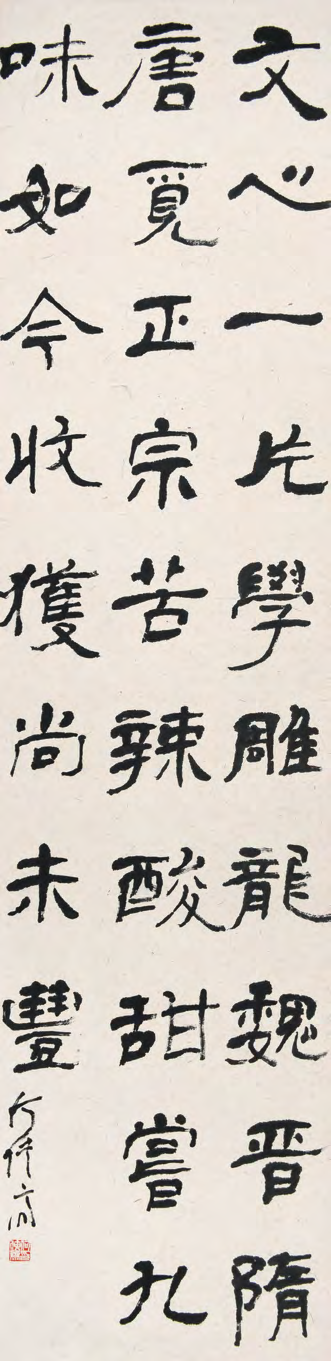 文心一片學雕龍魏晋隋
唐覓正宗苦辣酸甜嘗九
味如今收獲尚未豐